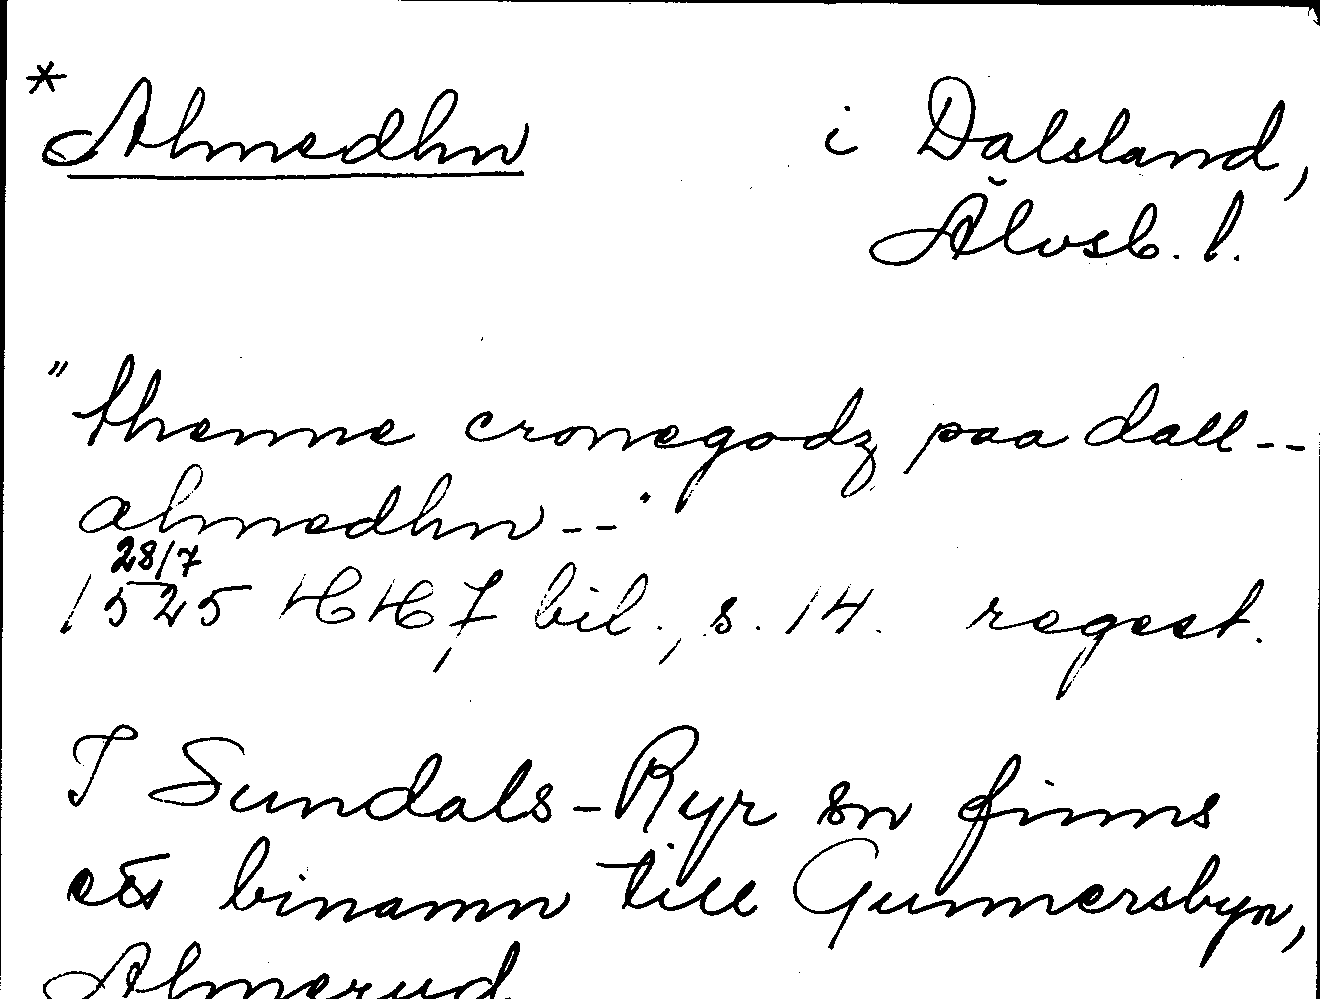 * Almedhn i Dalsland,
Älvsb. l.
"thenne cronegodz paa dall--
almedhn--"
28/7
1525 HH 7 bil., s. 14. regest.
I Sundals-Ryr sn finns
ett binamn till Gunnersbyn,
Almerud